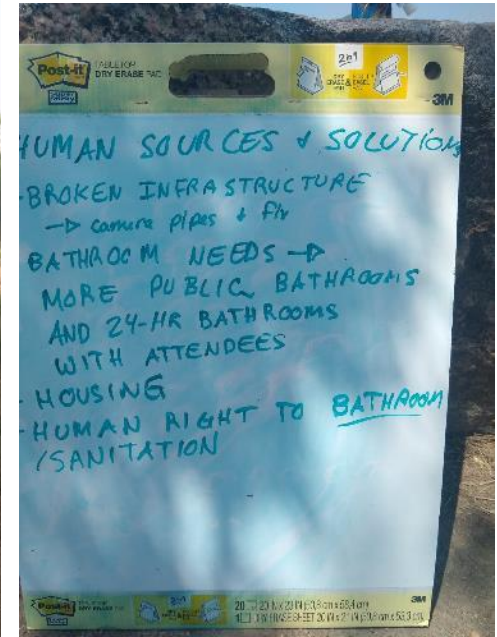 Post-it
TABLETOP
DRY ERASE PAD
2in1
3M
HUMAN SOURCES & SOLUTIONS
- BROKEN INFRASTRUCTURE
→ camera pipes + fix
BATHROOM NEEDS →
MORE PUBLIC BATHROOMS
AND 24-HR BATHROOMS
WITH ATTENDEES
- HOUSING
- HUMAN RIGHT TO BATHROOM
/SANITATION
Post-it
2in1
3M